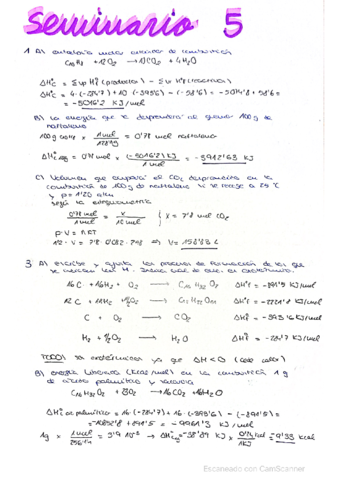 Seminario 5
1 A) entalpía molar estándar de combustión
C10H8 + 12O2 → 10CO2 + 4H2O
ΔH°c = Σνp H°f (productos) - Σνr H°f (reactivos)
ΔH°c = 4·(-284'7) + 10·(-393'6) - (-58'6) = -5074'8 + 58'6 =
= -5016'2 KJ/mol
B) La energía que se desprenderá al quemar 100g de
naftaleno
100g · 1mol / 128g = 0'78 mol naftaleno
ΔH°100g = 0'78 mol × (-5016'2) KJ / 1 mol = -3912'63 KJ
C) Volumen que ocupará el CO2 desprendido en la
combustión de 100g de naftaleno si se recoge a 25 °C
y p = 1'20 atm
según la estequiometría
0'78 mol / 1 mol = x / 10 mol } x = 7'8 mol CO2
P·V = nRT
1'2 · V = 7'8 · 0'082 · 298 ⇒ V =
3 A) escribe y ajusta los procesos de formación de los que
16C + 16H2 + O2 → C16H32O2 ΔH°f = -891'5 KJ/mol
12C + 11H2 + 11/2 O2 → C12H22O11 ΔH°f = -2221'8 KJ/mol
C + O2 → CO2 ΔH°f = -393'6 KJ/mol
H2 + 1/2 O2 → H2O ΔH°f = -284'7 KJ/mol
TODOS son exotérmicos ya que ΔH < 0 (cede calor)
B) energía liberada (kcal/mol) en la combustión 1g
de ácido palmítico y sacarosa
C16H32O2 + 23O2 → 16CO2 + 16H2O
ΔH°c ac palmítico = 16·(-284'7) + 16·(-393'6) - (-891'5) =
= -10852'8 + 891'5 = -9961'3 KJ/mol
1g × 1mol / 256g = 3'9·10⁻³ → ΔH°c1g = -38'89 KJ × 0'24 kcal / 1KJ = -9'33 kcal
Escaneado con CamScanner